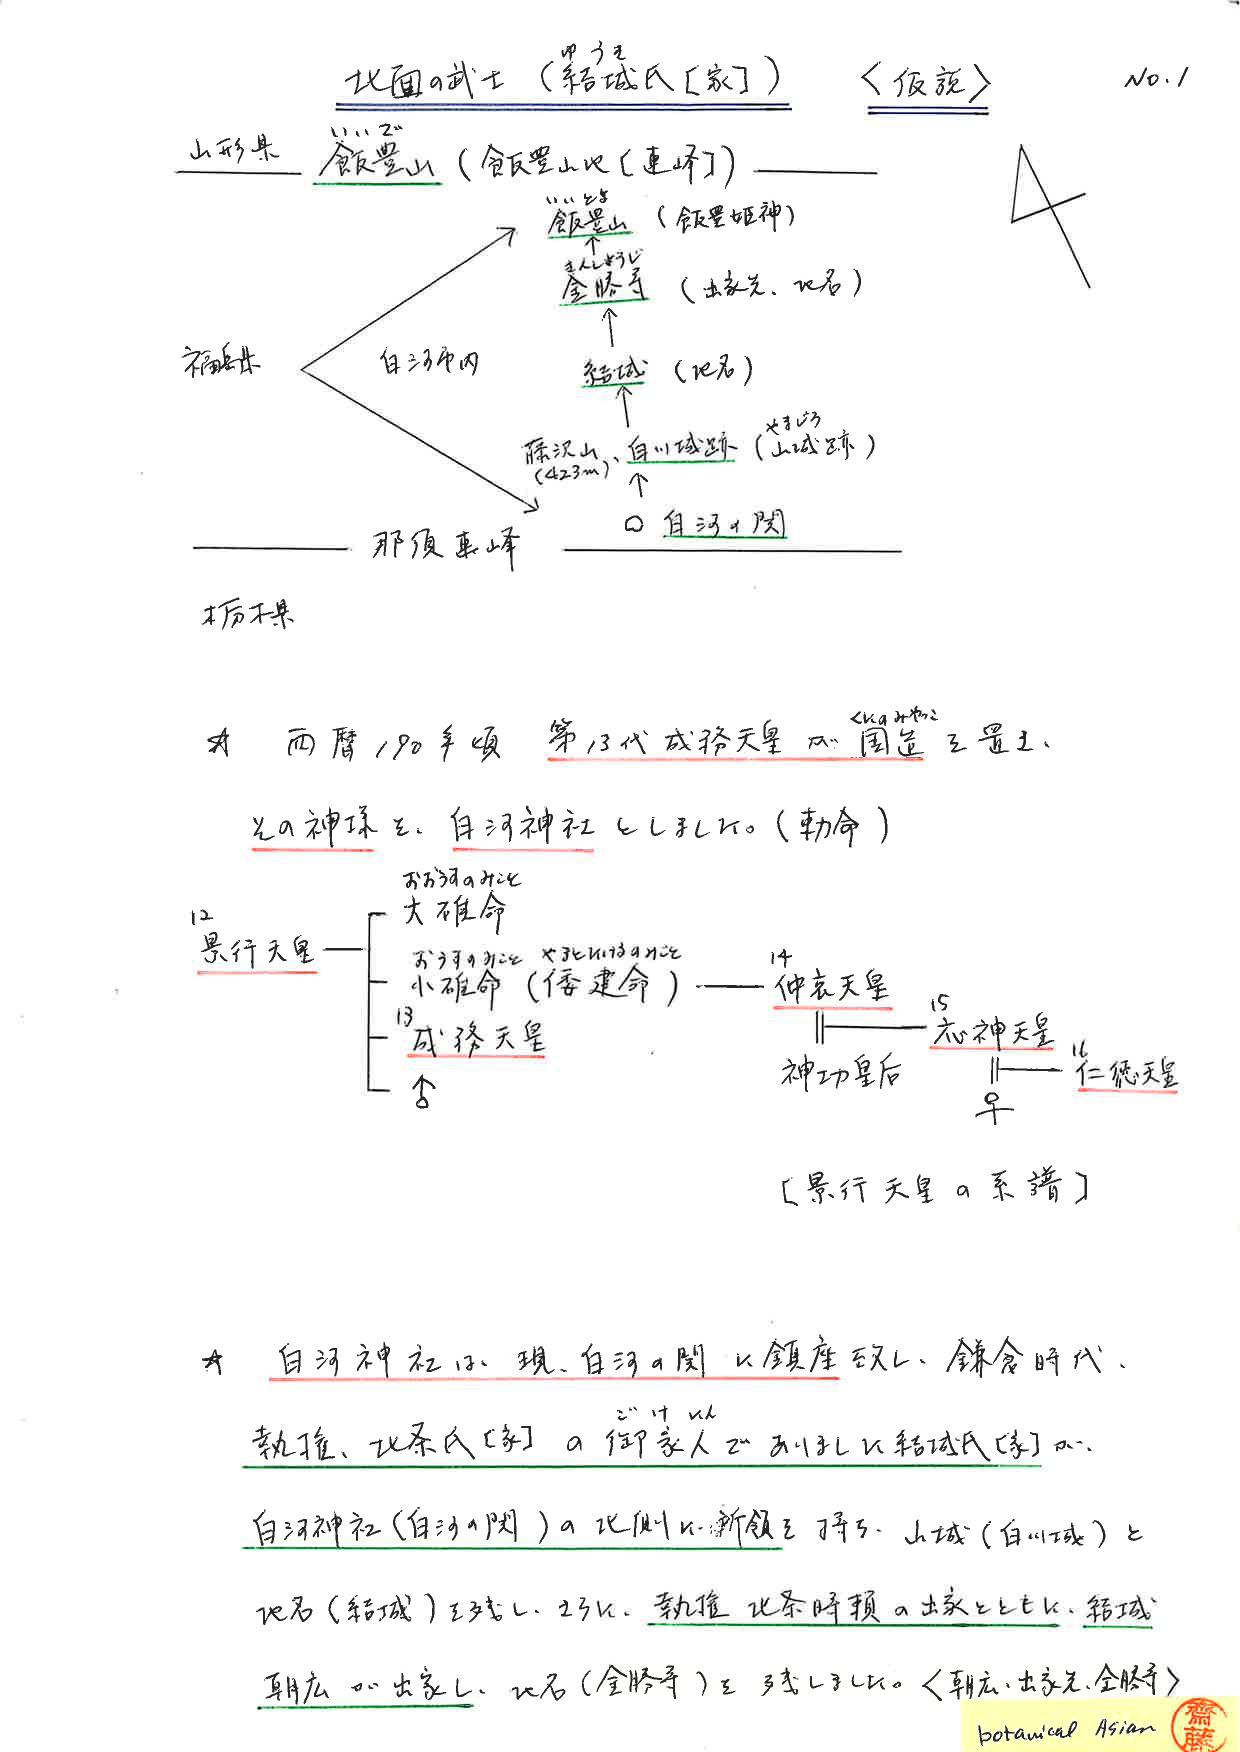 北面の武士（結城氏[家]）　〈仮説〉　No.1
ゆうき
山形県　飯豊山（飯豊山地[連峰]）
いいで
いいとよ
飯豊山（飯豊姫神）
↑
きんしょうじ
金勝寺（出家先、地名）
↑
福島県　白河市内　結城（地名）
↑
やまじろ
藤沢山、白川城跡（山城跡）
(423m)
↑
○ 白河の関
那須連峰
栃木県
☆ 西暦190年頃 第13代成務天皇が国造を置き、
くにのみやつこ
その神様を、白河神社としました。（勅命）
おおうすのみこと
大碓命
12
景行天皇
おうすのみこと　やまとたけるのみこと
小碓命（倭建命）
14
仲哀天皇
13
成務天皇
15
応神天皇
神功皇后
16
仁徳天皇
[景行天皇の系譜]
☆ 白河神社は、現、白河の関に鎮座致し、鎌倉時代、
ごけにん
執権、北条氏[家]の御家人でありました結城氏[家]が、
白河神社（白河の関）の北側に、新領を持ち、山城（白川城）と
地名（結城）を残し、さらに、執権 北条時頼の出家とともに、結城
朝広が出家し、地名（金勝寺）を残しました。〈朝広、出家先、金勝寺〉
botanical Asian 齋藤